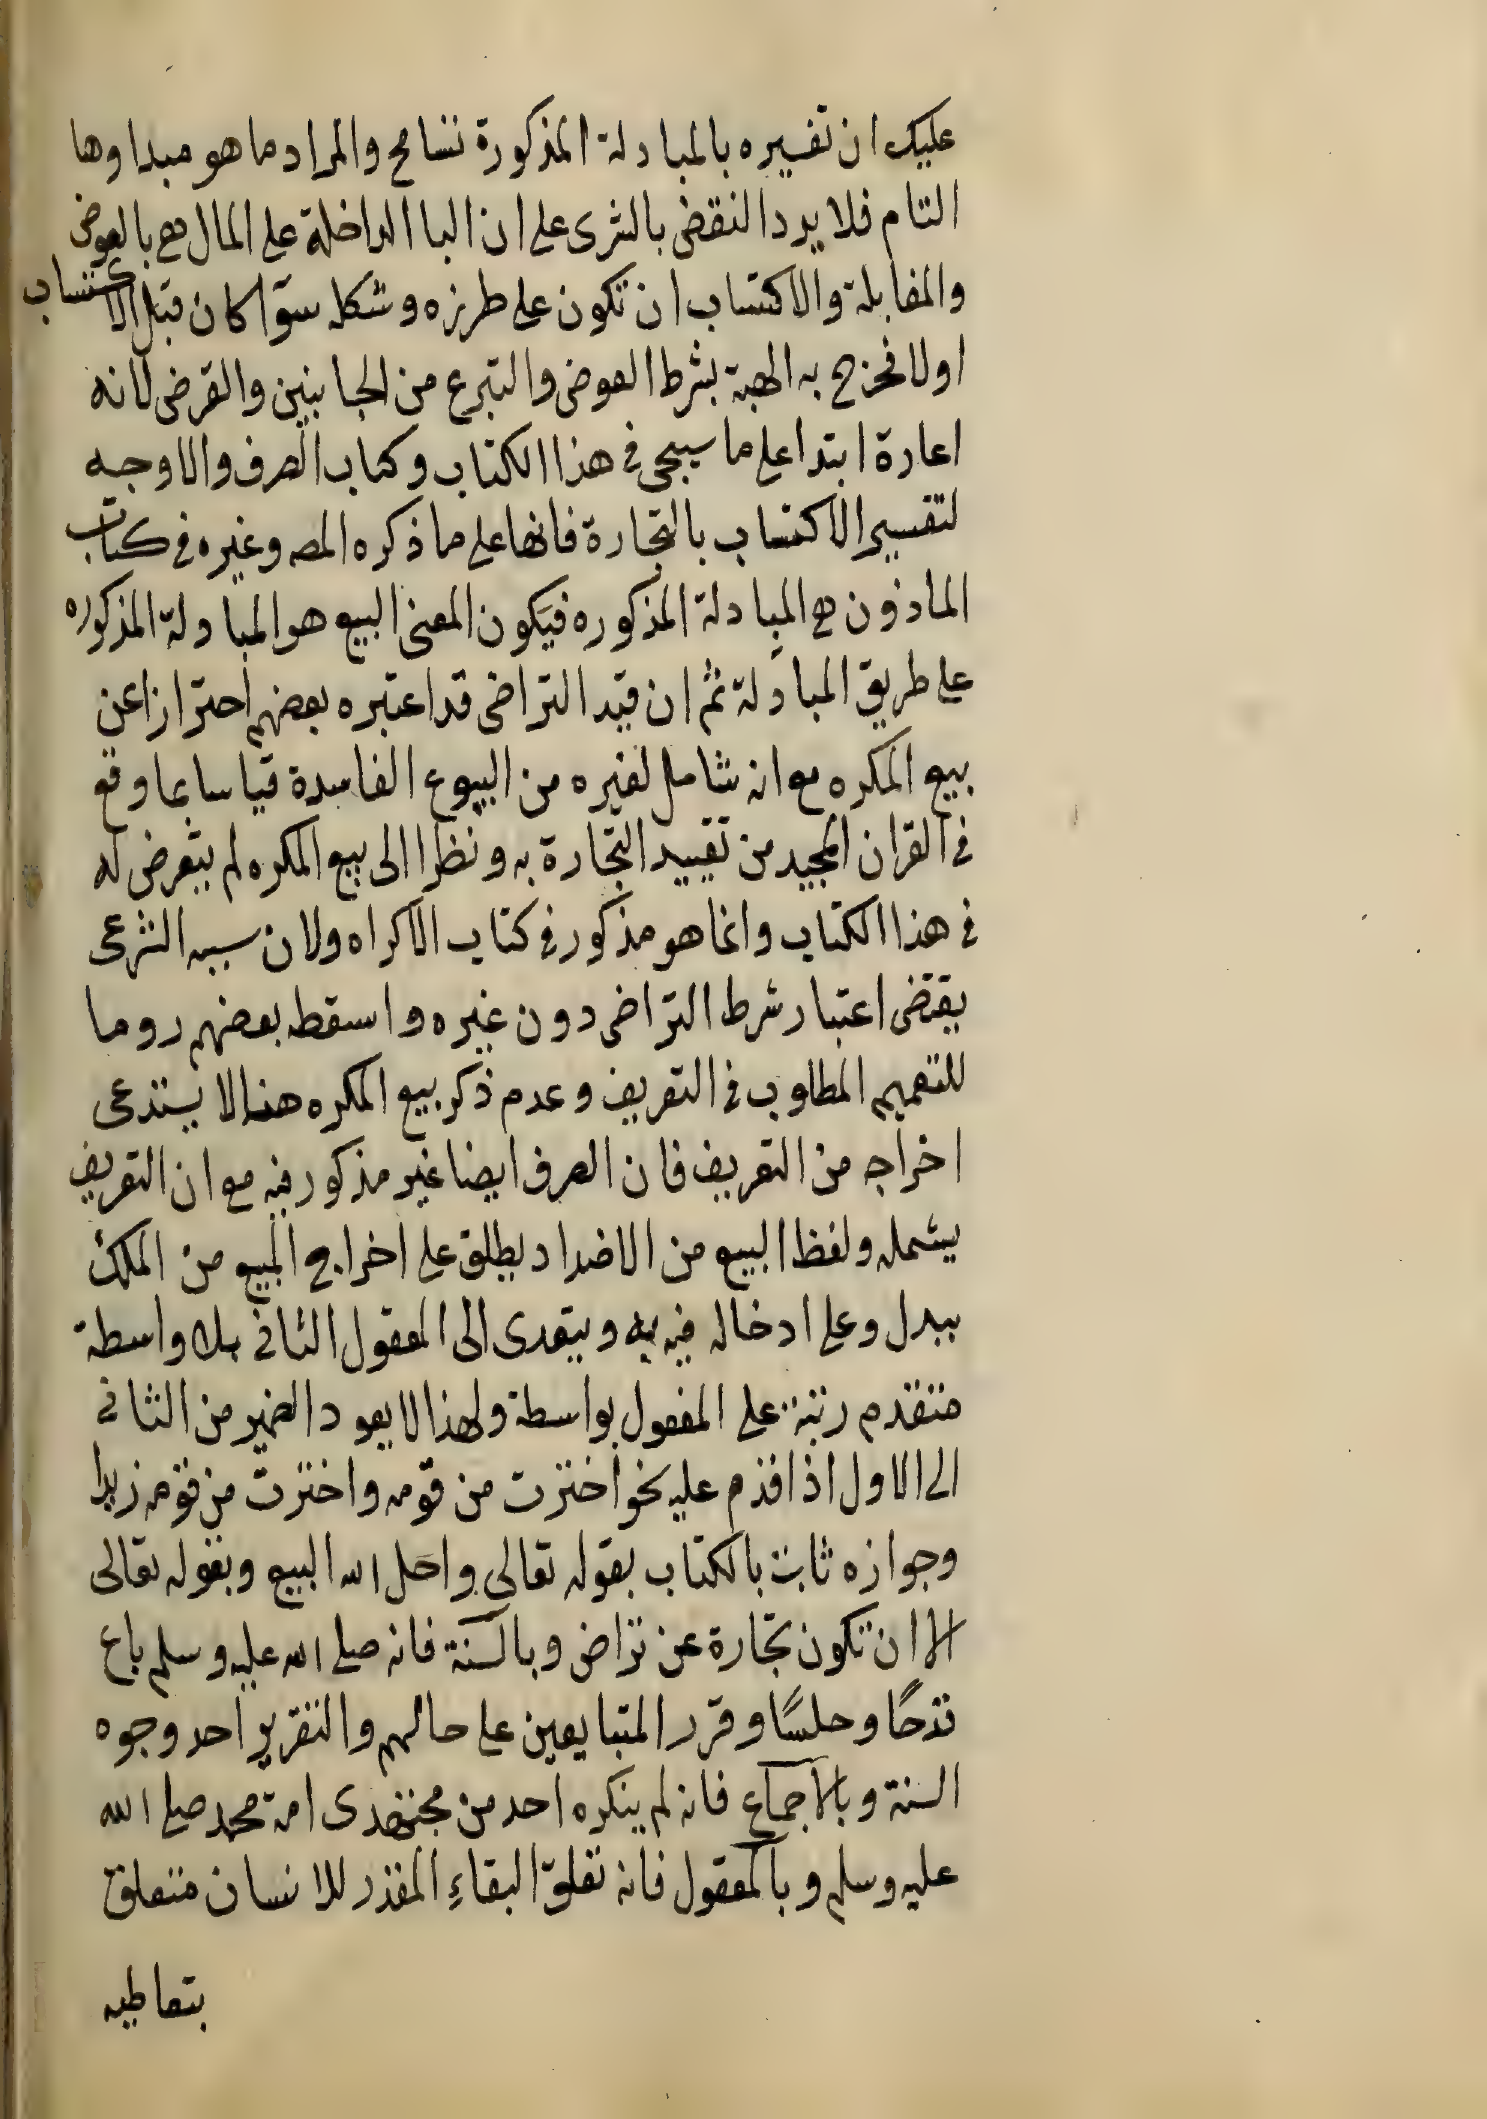 عليك ان تفسيره بالمبادلة المذكورة تسامح والمراد ما هو مبداوها
التام فلا يرد النقض بالشرى على ان البا الداخلة على المال هي با العوض
والمقابلة والاكتساب ان تكون على طرزه وشكله سوّا كان قبل الاكتساب
اولا فخرج به الهبة بشرط العوض والتبرع من الجانبين والقرض لانه
اعارة ابتدا على ما سيجى في هذا الكتاب وكتاب الصرف والاوجه
لتفسير الاكتساب بالتجارة فانها على ما ذكره المصـ وغيره في كتاب
الماذون هي المبادلة المذكوره فيكون المعنى البيع هو المبادلة المذكوره
على طريق المبادلة ثم ان قيد التراضى قد اعتبره بعضهم احترازا عن
بيع المكره مع انه شامل لغيره من البيوع الفاسدة قياسا بما وقع
في القران المجيد من تقييد التجارة به ونظرا الى بيع المكره لم يتعرض له
في هذا الكتاب وانما هو مذكور في كتاب الاكراه ولان سببه الشرعى
يقتضى اعتبار شرط التراضى دون غيره واسقطه بعضهم روما
للتعميم المطلوب في التعريف وعدم ذكر بيع المكره هنا لا يستدعى
اخراجه من التعريف فان الصرف ايضا غير مذكور فيه مع ان التعريف
يشمله ولفظ البيع من الاضداد يطلق على اخراج المبيع من الملك
ببدل وعلى ادخاله فيه به ويتعدى الى المفعول الثانى بلا واسطة
متقدم رتبة على المفعول بواسطة ولهذا لا يعود الضمير من الثانى
الى الاول اذا قدم عليه نحو اخترت من قومه واخترت من قومه زيدا
وجوازه ثابت بالكتاب بقوله تعالى واحل الله البيع وبقوله تعالى
الا ان تكون تجارة عن تراض وبالسنة فانه صلى الله عليه وسلم باع
قدحًا وحلسًا وقرر المتبايعين على حالهم والتقرير احد وجوه
السنة وبالاجماع فانه لم ينكره احد من مجتهدى امة محمد صلى الله
عليه وسلم وبالمعقول فانه تعلق البقاءِ المقدر للانسان متعلق
بتعاطيه